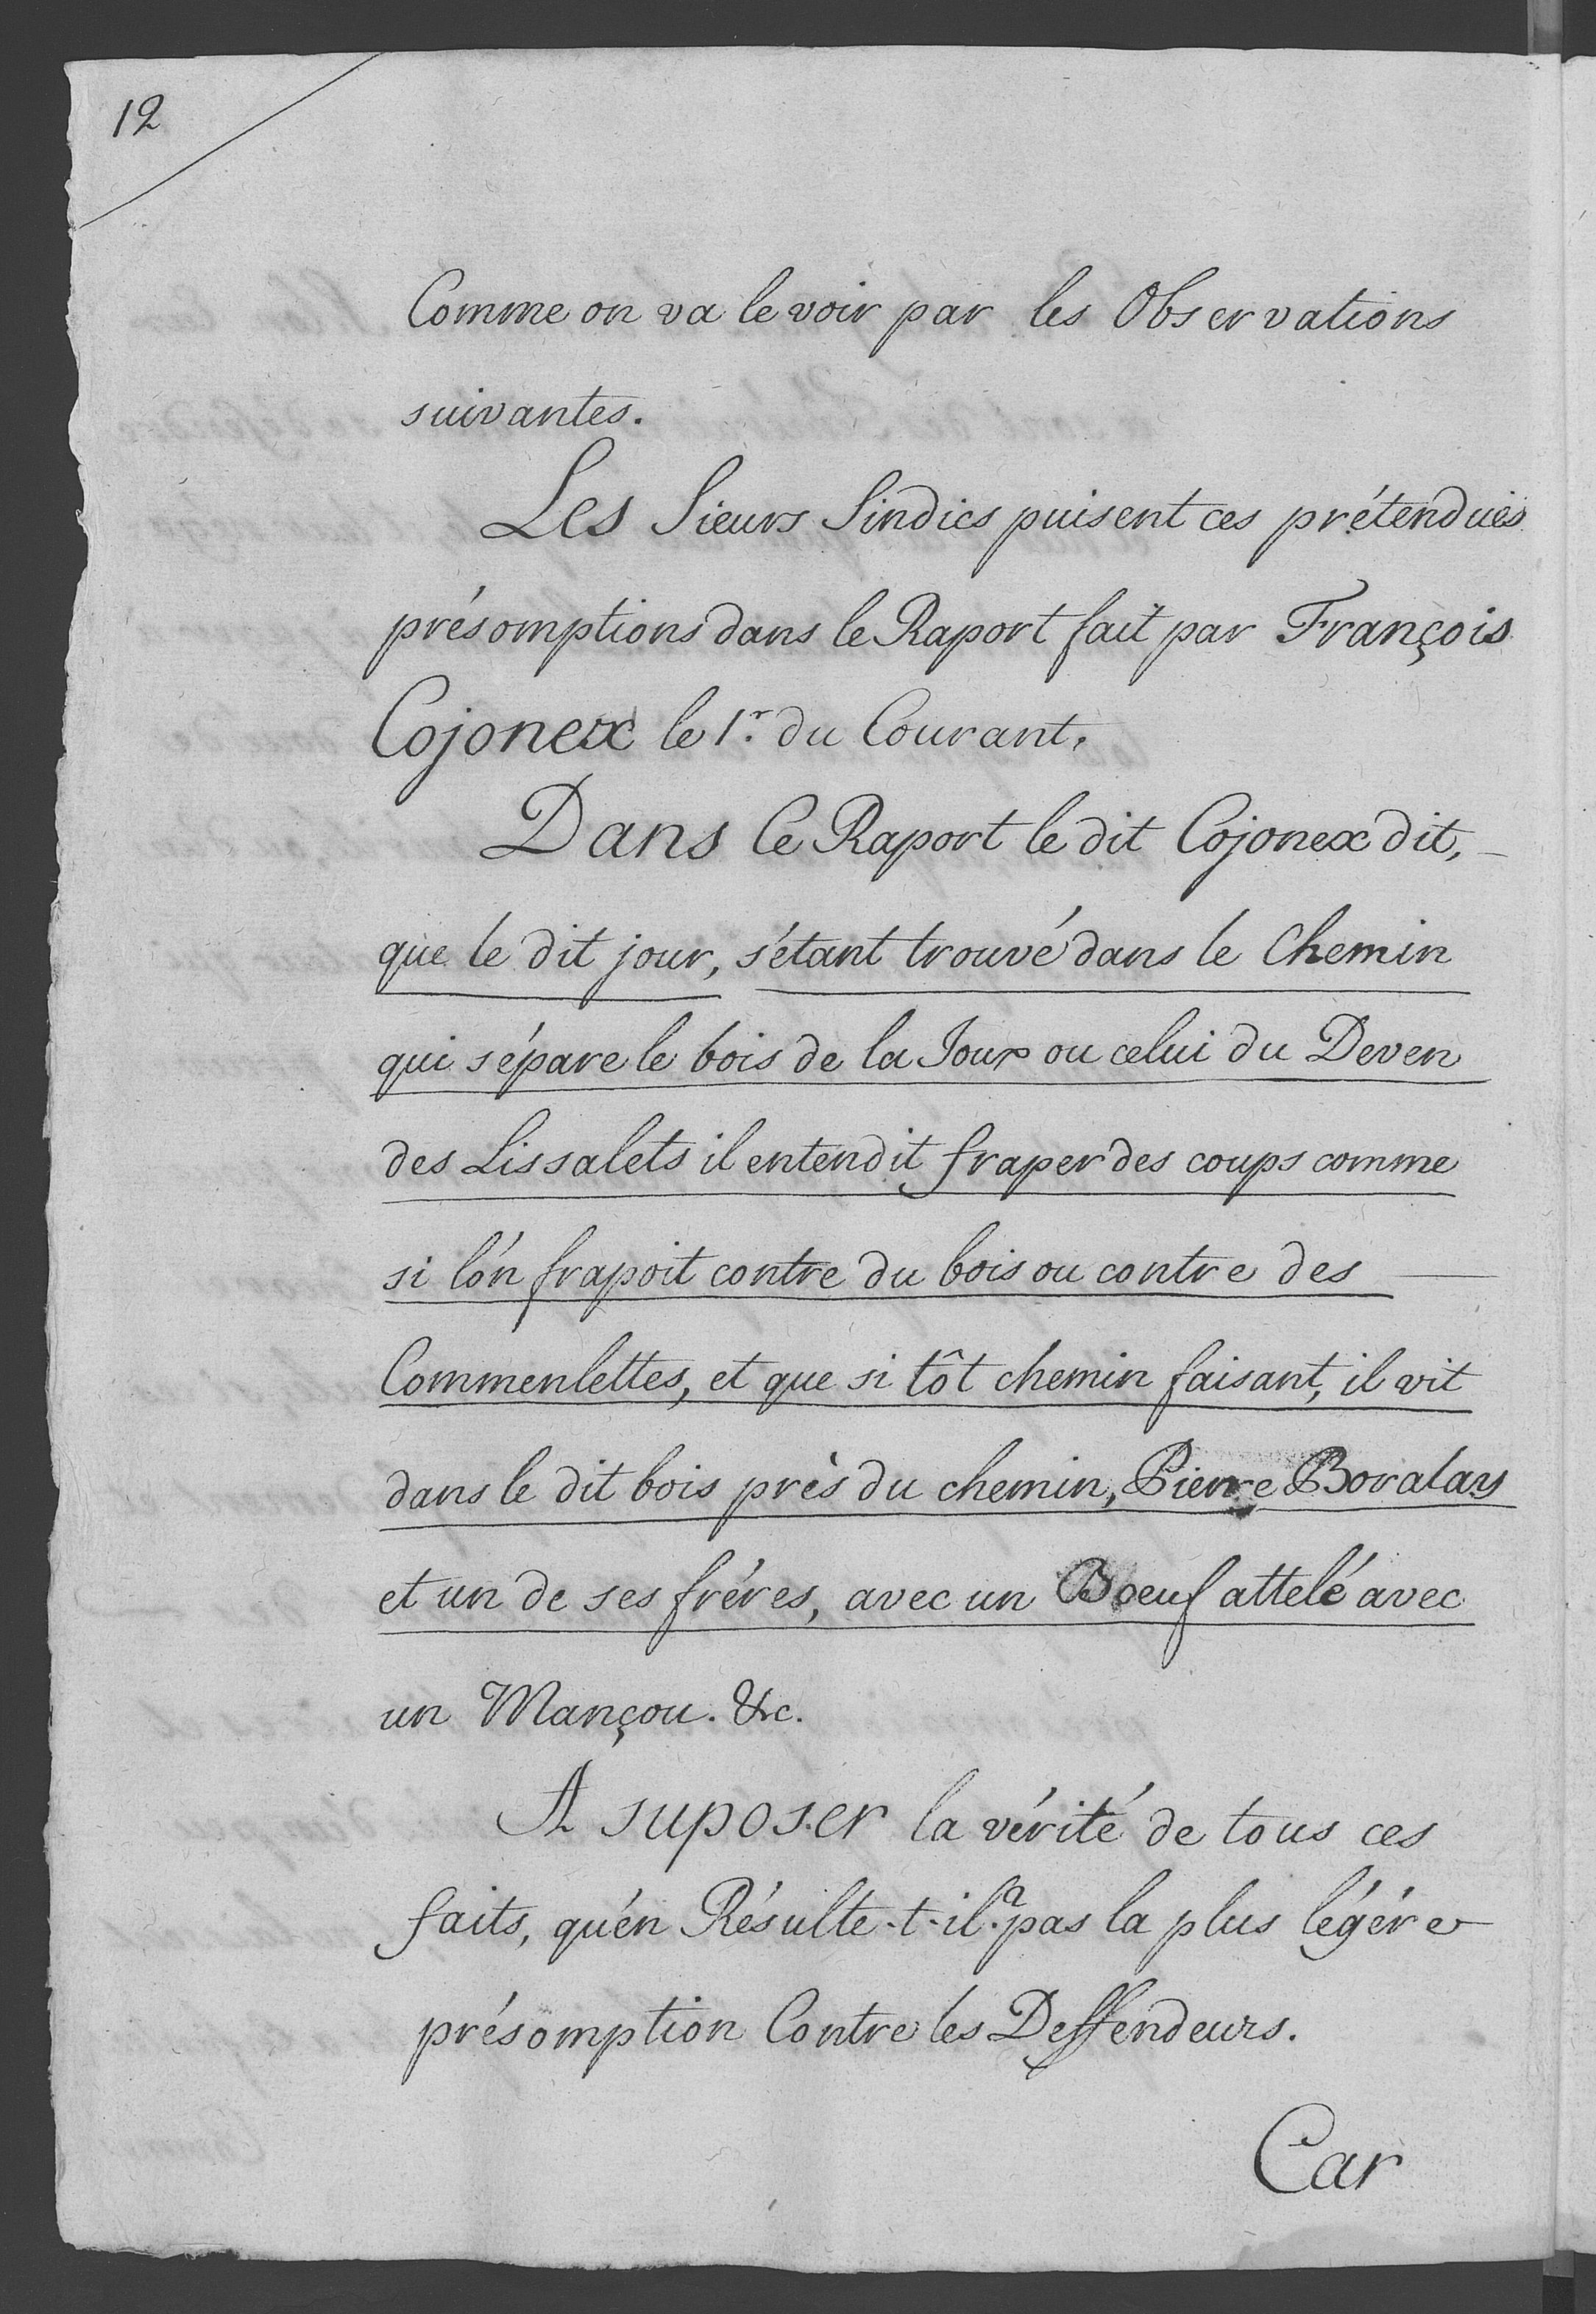 12
Comme on va le voir par les Observations
suivantes.
Les Sieurs Sindics puisent ces prétenduës
présomptions dans le Raport fait par François
Cojonex le 1.r du Courant,
Dans ce Raport le dit Cojonex dit,
que le dit jour, s'étant trouvé dans le Chemin
qui sépare le bois de la Joux ou celui du Deven
des Lissalets il entendit fraper des coups comme
si l'ón frapoit contre du bois ou contre des
Commenlettes, et que si tôt chemin faisant, il vit
dans le dit bois près du chemin, Pierre Boralay
et un de ses fréres, avec un Boeuf attelé avec
un Mançou. &c.
A suposer la vérité de tous ces
faits, qu'én Résulte-t-il? pas la plus légére
présomption Contre les Deffendeurs.
Car